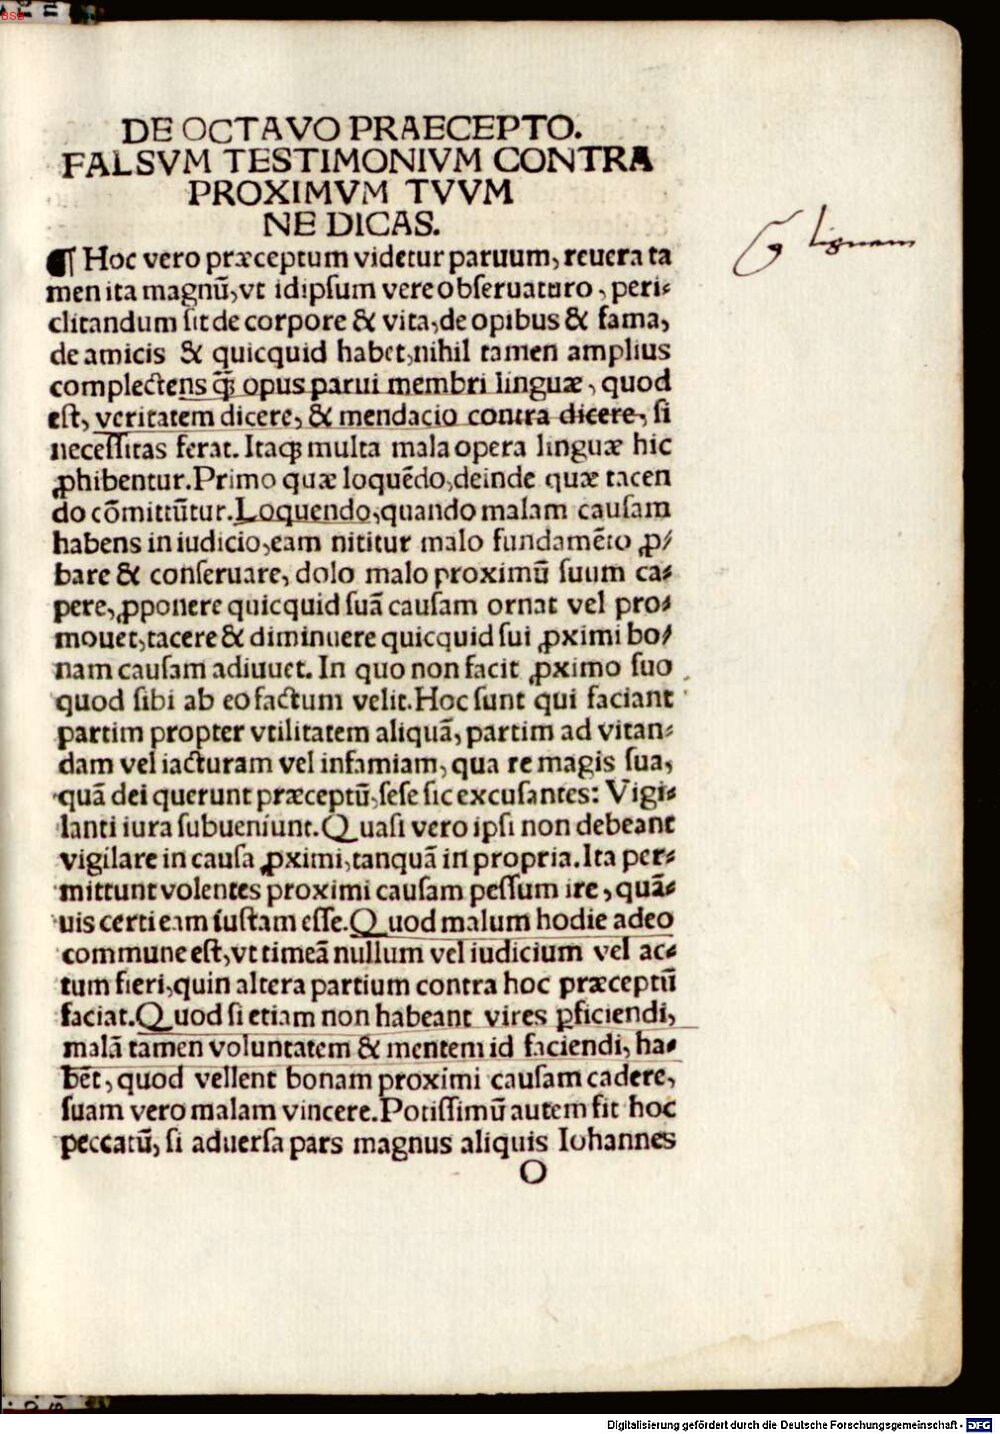 DE OCTAVO PRAECEPTO.
FALSVM TESTIMONIVM CONTRA
PROXIMVM TVVM
NE DICAS.
¶ Hoc vero præceptum videtur paruum, reuera ta
men ita magnũ, vt idipſum vere obſeruaturo, peri⸗
clitandum ſit de corpore & vita, de opibus & fama,
de amicis & quicquid habet, nihil tamen amplius
complectens q̃ꝫ opus parui membri linguæ, quod
eſt, veritatem dicere, & mendacio contra dicere, ſi
neceſſitas ferat. Itaqꝫ multa mala opera linguæ hic
ꝓhibentur. Primo quæ loquẽdo, deinde quæ tacen
do cõmittũtur. Loquendo, quando malam cauſam
habens in iudicio, eam nititur malo fundamẽto ꝓ/
bare & conſeruare, dolo malo proximũ ſuum ca⸗
pere, ꝓponere quicquid ſuã cauſam ornat vel pro⸗
mouet, tacere & diminuere quicquid ſui ꝓximi bo/
nam cauſam adiuuet. In quo non facit ꝓximo ſuo
quod ſibi ab eo factum velit. Hoc ſunt qui faciant
partim propter vtilitatem aliquã, partim ad vitan⸗
dam vel iacturam vel infamiam, qua re magis ſua,
quã dei querunt præceptũ, ſeſe ſic excuſantes: Vigi⸗
lanti iura ſubueniunt. Quaſi vero ipſi non debeant
vigilare in cauſa ꝓximi, tanquã in propria. Ita per⸗
mittunt volentes proximi cauſam peſſum ire, quã⸗
uis certi eam iuſtam eſſe. Quod malum hodie adeo
commune eſt, vt timeã nullum vel iudicium vel ac⸗
tum fieri, quin altera partium contra hoc præceptũ
faciat. Quod ſi etiam non habeant vires ꝑficiendi,
malã tamen voluntatem & mentem id faciendi, ha⸗
bẽt, quod vellent bonam proximi cauſam cadere,
ſuam vero malam vincere. Potiſſimũ autem fit hoc
peccatũ, ſi aduerſa pars magnus aliquis Iohannes
O
lignam
BSB
Digitalisierung gefördert durch die Deutsche Forschungsgemeinschaft - DFG